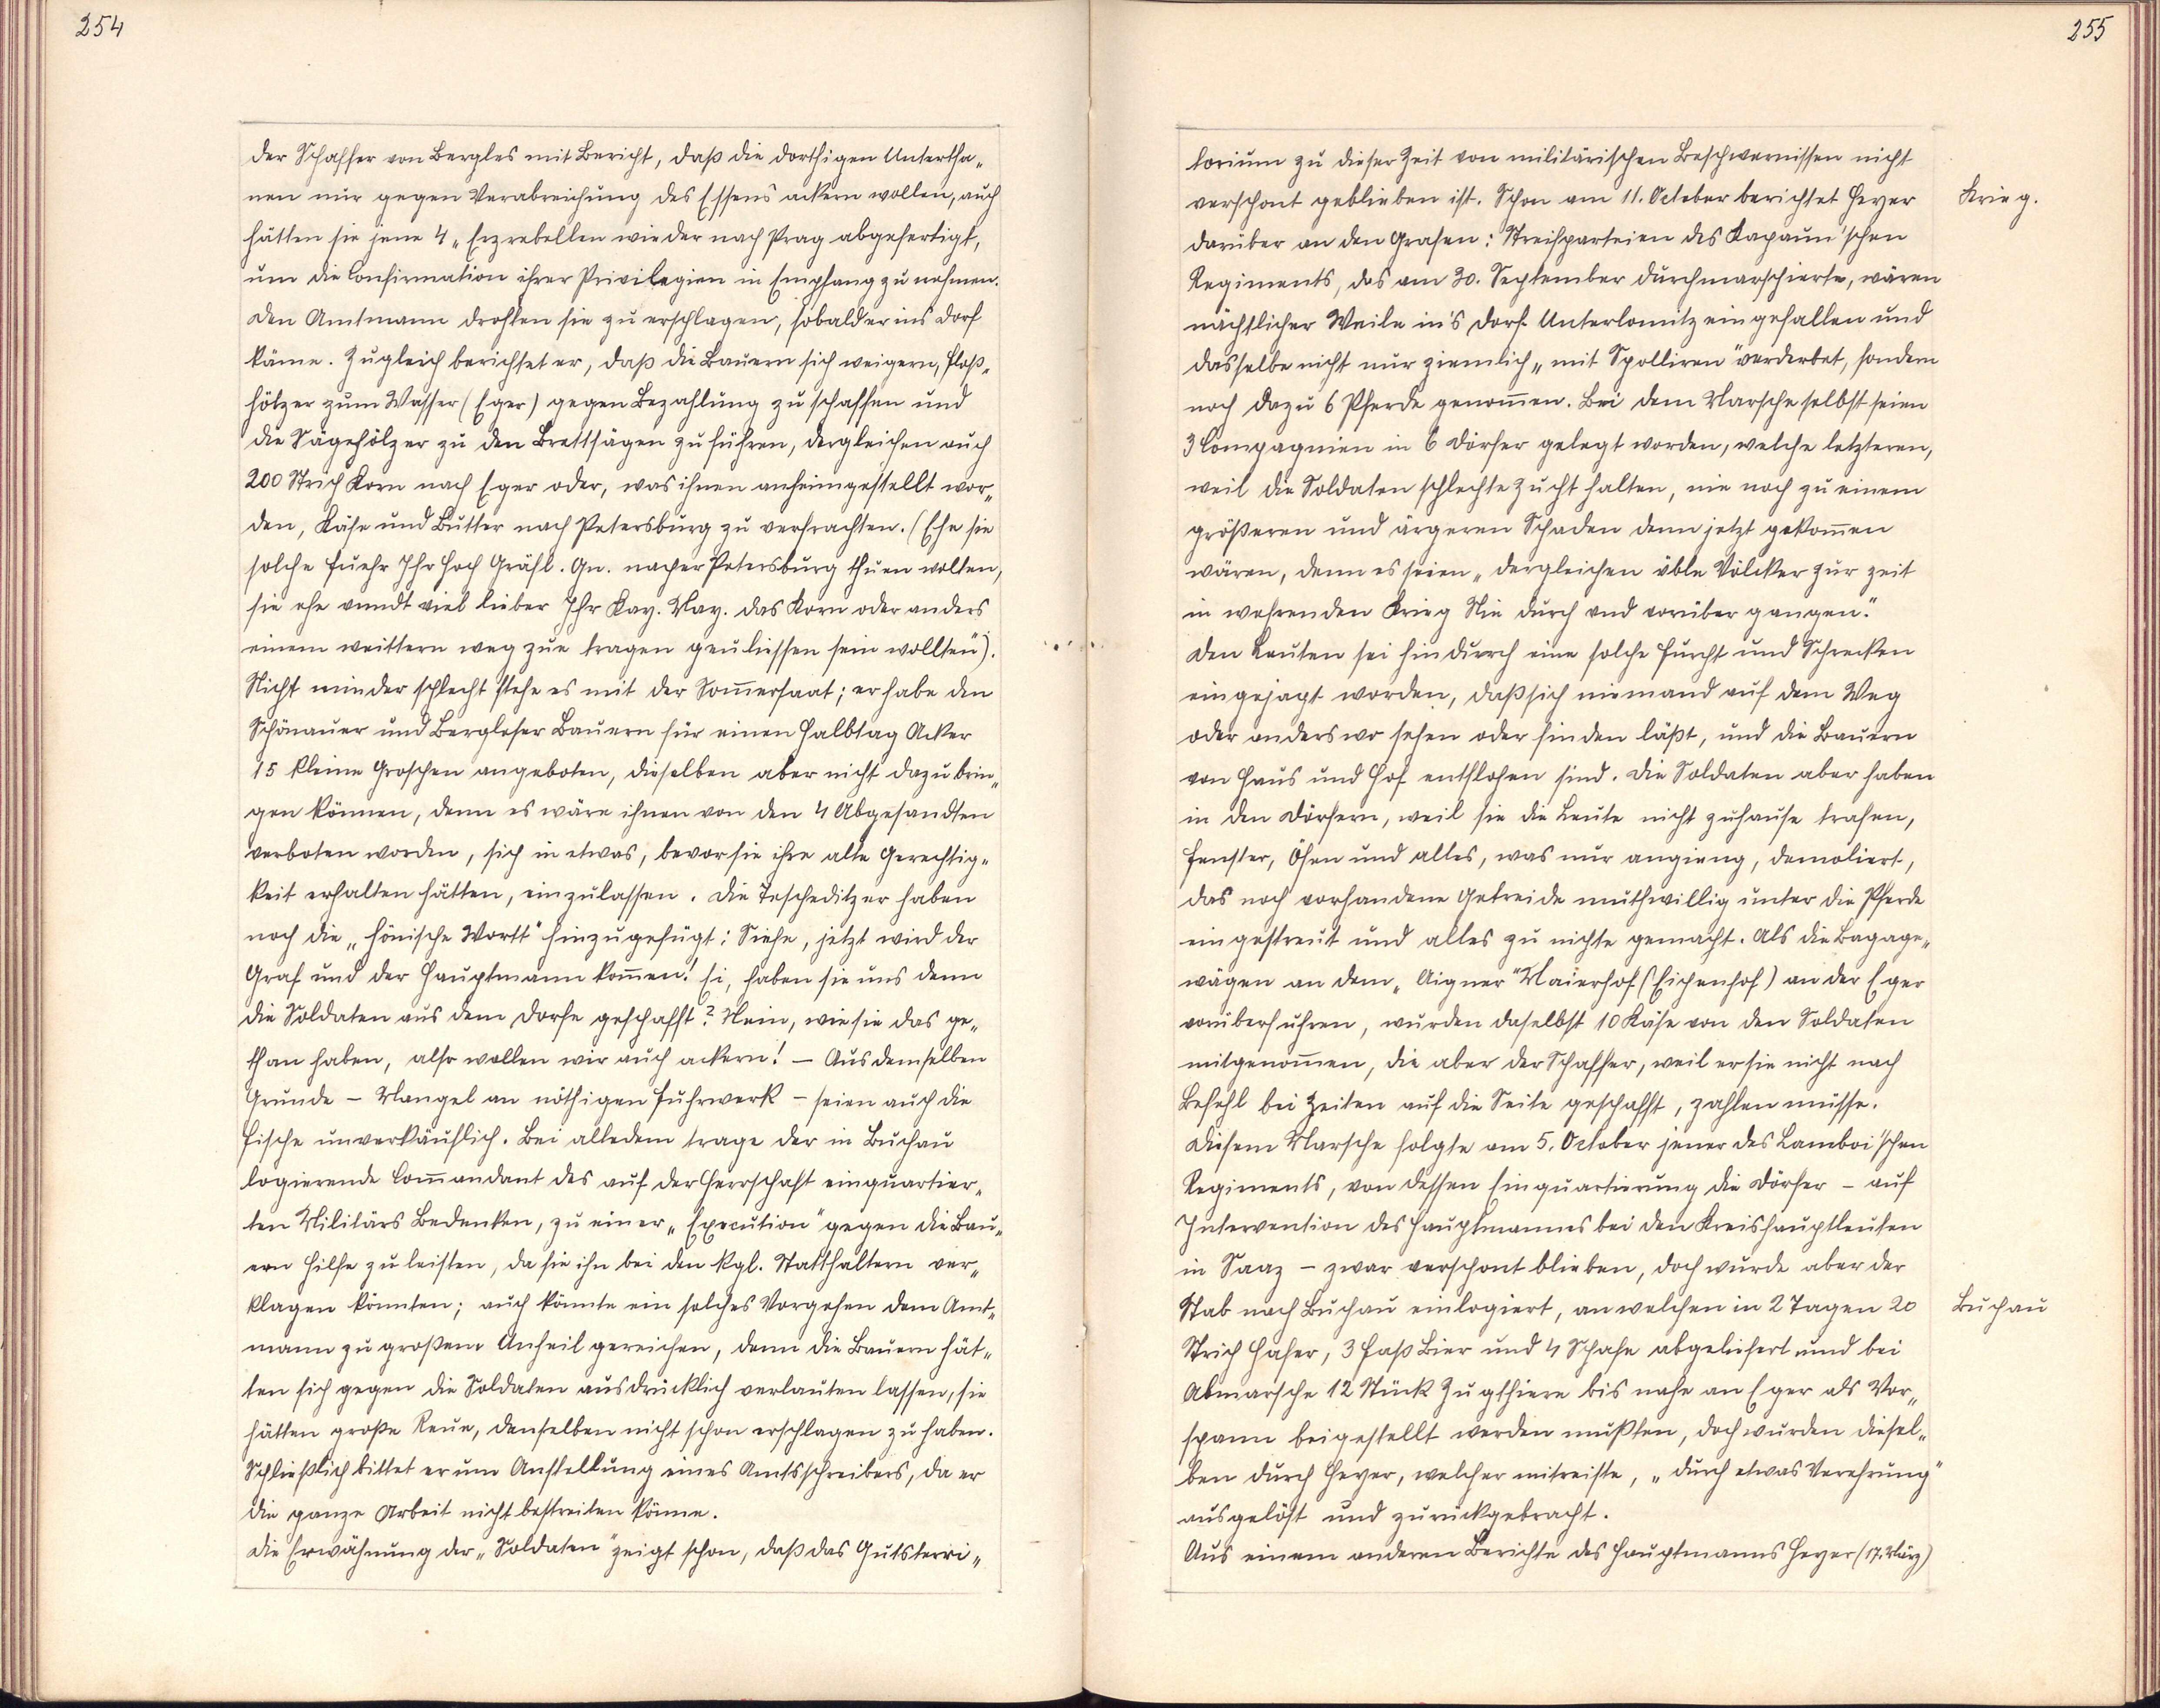 254
der Schaffer von Bergles mit Bericht, daß die dorthigen Untertha-
nen nur gegen Verabreichung des Essens ackern wollen, auch
hätten sie jene 4 „Erzrebellen wieder nach Prag abgefertigt,
um die Confirmation ihrer Privilegien in Empfang zu nehmen.
Den Amtmann drohten sie zu erschlagen, sobald er ins Dorf
käme. Zugleich berichtet er, daß die Bauern sich weigern, Floß-
hölzer zum Wasser (Eger) gegen Bezahlung zu schaffen und
die Sägehölzer zu den Brettsägen zu führen, dergleichen auch
200 Strich Korn nach Eger oder, was ihnen anheimgestellt wor-
den, Käse und Butter nach Petersburg zu verfrachten. (Ehe sie
solche fuehr Ihr Hoch Gräfl. Gn. nacher Petersburg thuen wolten,
sie ehe vnndt viel lieber Ihr Kay. May. das Korn oder anders
einem weittern weg zue tragen geuliessen sein wollten").
Nicht minder schlecht stehe es mit der Som̄ersaat; er habe den
Schönauer und Bergleser Bauern für einen Halbtag Acker
15 kleine Groschen angeboten, dieselben aber nicht dazu brin-
gen können, denn es wäre ihnen von den 4 Abgesandten
verboten worden, sich in etwas, bevor sie ihre alte Gerechtig-
keit erhalten hätten, einzulassen. Die Teschetitzer haben
noch die „hönische Wortt" hinzugefügt: Siehe, jetzt wird der
Graf und der Hauptmann kom̄en! Ei, haben sie uns denn
die Soldaten aus dem Dorfe geschafft? Nein, wie sie das ge-
than haben, also wollen wir auch ackern! – Aus demselben
Grunde – Mangel an nöthigen Fuhrwerk – seien auch die
Fische unverkäuflich. Bei alledem trage der in Buchau
logierende Com̄andant des auf der Herrschaft einquartier-
ten Militärs Bedenken, zu einer „Execution" gegen die Bau-
ern Hilfe zu leisten, da sie ihn bei den kgl. Statthaltern ver-
klagen könnten; auch könnte ein solches Vorgehen dem Amt-
mann zu großem Unheil gereichen, denn die Bauern hät-
ten sich gegen die Soldaten ausdrücklich verlauten lassen, sie
hätten große Reue, denselben nicht schon erschlagen zu haben.
Schließlich bittet er um Anstellung eines Amtsschreibers, da er
die ganze Arbeit nicht bestreiten könne.
Die Erwähnung der „Soldaten" zeigt schon, daß das Gutsterri-
255
torium zu dieser Zeit von militärischen Beschwernissen nicht
verschont geblieben ist. Schon am 11. October berichtet Heyer
Krieg.
darüber an den Grafen: Streifparteien des Kapaun'schen
Regiments, das am 30. September durchmarschierte, wären
nächtlicher Weile in's Dorf Unterlomitz eingefallen und
dasselbe nicht nur ziemlich „mit Spolliren" verderbet, sondern
noch dazu 6 Pferde genom̄en. Bei dem Marsche selbst seien
3 Compagnien in 6 Dörfer gelegt worden, welche letzteren,
weil die Soldaten schlechte Zucht halten, nie noch zu einem
größeren und ärgeren Schaden denn jetzt gekom̄en
wären, denn es seien „dergleichen üble Völcker zur zeit
in wehrenden Krieg Nie durch vnd vorüber gangen."
Den Leuten sei hiedurch eine solche Furcht und Schrecken
eingejagt worden, daß sich niemand auf dem Weg
oder anderswo sehen oder finden läßt, und die Bauern
von Haus und Hof entflohen sind. Die Soldaten aber haben
in den Dörfern, weil sie die Leute nicht zuhause trafen,
Fenster, Öfen und alles, was nur angieng, demoliert,
das noch vorhandene Getreide muthwillig unter die Pferde
eingestreut und alles zu nichte gemacht. Als die Bagage-
wägen an dem „Aigner" Maierhof (Eichenhof) an der Eger
vorüberfuhren, wurden daselbst 10 Käse von den Soldaten
mitgenom̄en, die aber der Schaffer, weil er sie nicht nach
Befehl bei Zeiten auf die Seite geschafft, zahlen müsse.
Diesem Marsche folgte am 5. October jener des Lamboi'schen
Regiments, von dessen Einquartierung die Dörfer – auf
Intervention des Hauptmannes bei den Kreishauptleuten
in Saaz – zwar verschont blieben, doch wurde aber der
Stab nach Buchau einlogiert, an welchen in 2 Tagen 20
Buchau
Strich Hafer, 3 Faß Bier und 4 Schafe abgeliefert und bei
Abmarsche 12 Stück Zugthiere bis nahe an Eger als Vor-
spann beigestellt werden mußten, doch wurden diesel-
ben durch Heyer, welcher mitreiste, „durch etwas Verehrung"
ausgelöst und zurückgebracht.
Aus einem anderen Berichte des Hauptmanns Heyer (17. März)